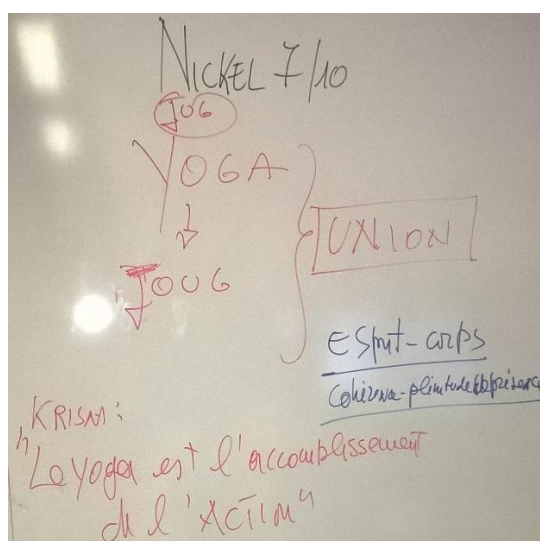 NICKEL 7/10
JOG
YOGA
JOUG
UNION
Esprit-corps
Cohérence-plénitude
KRISM:
"Le yoga est l'accomplissement
de l'ACTION"